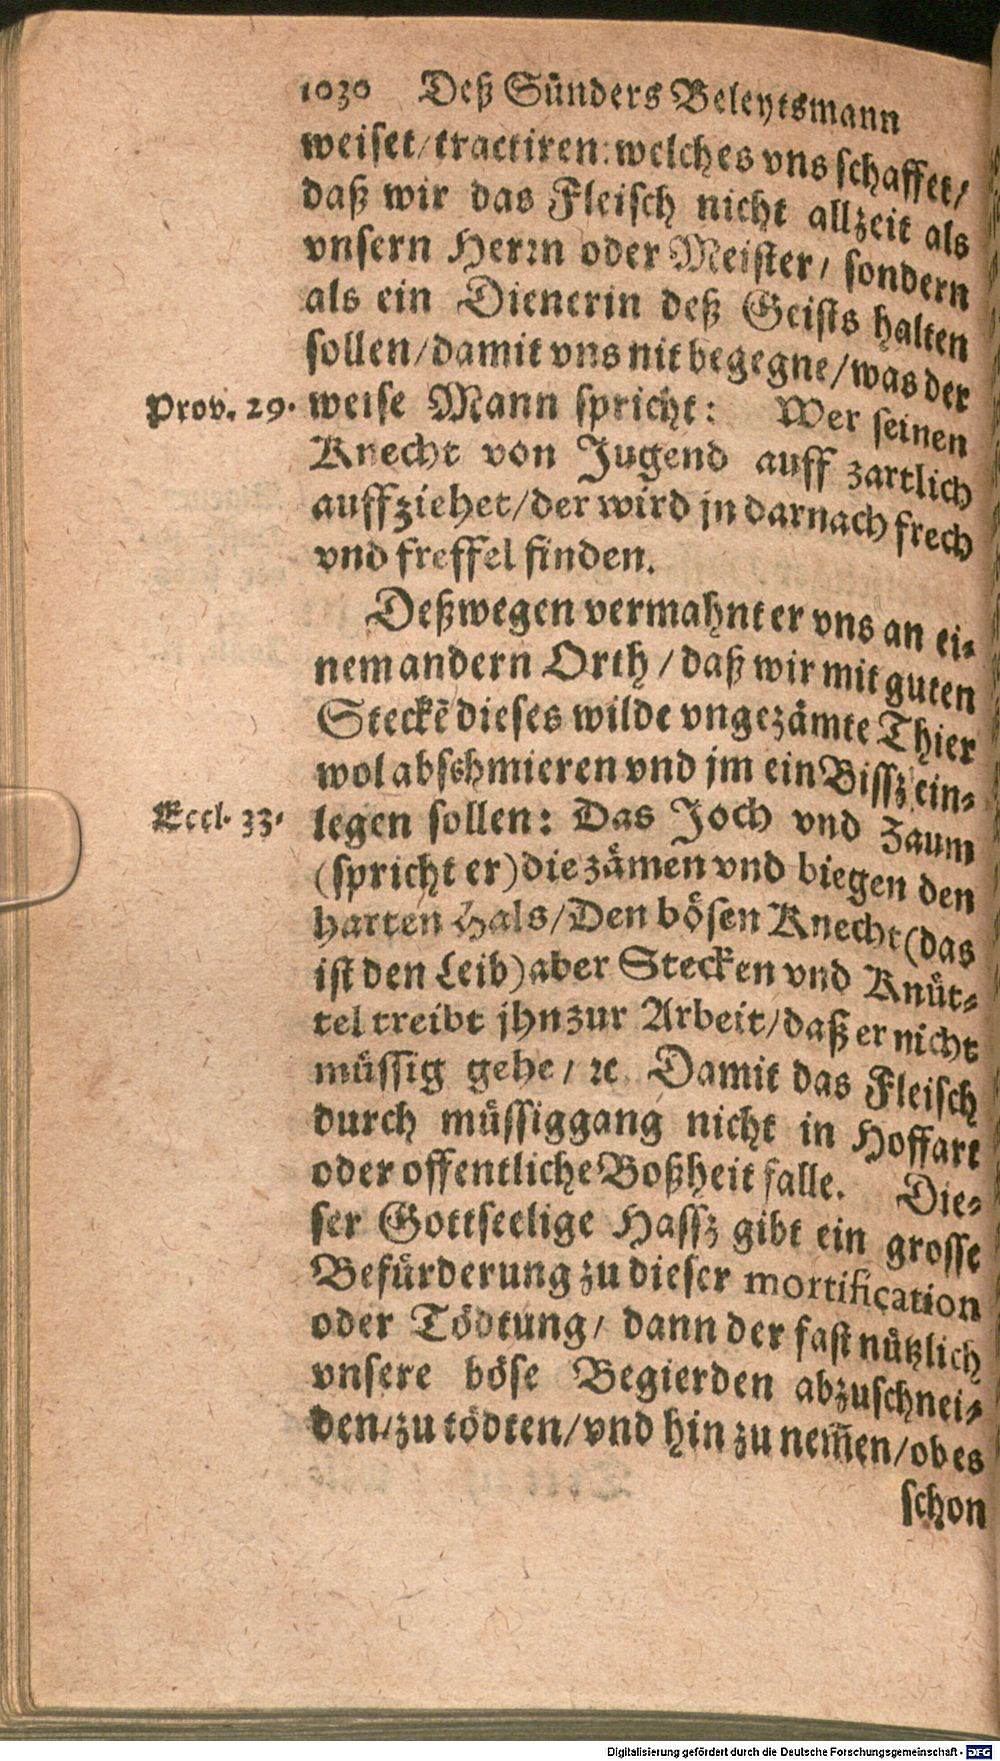 1030 Deß Sünders Beleytsmann
weiset/tractiren: welches vns schaffet/
daß wir das Fleisch nicht allzeit als
vnsern Herrn oder Meister/ sondern
als ein Dienerin deß Geists halten
sollen/damit vns nit begegne/was der
Prov. 29. weise Mann spricht: Wer seinen
Knecht von Jugend auff zartlich
auffziehet/der wird jn darnach frech
vnd freffel finden.
Deßwegen vermahnt er vns an ei-
nem andern Orth/ daß wir mit guten
Steckẽ dieses wilde vngezämte Thier
wol abschmieren vnd jm ein Bissz ein-
Eccl. 33. legen sollen: Das Joch vnd Zaum
(spricht er) die zämen vnd biegen den
harten Hals/Den bösen Knecht (das
ist den Leib) aber Stecken vnd Knüt-
tel treibt jhn zur Arbeit/daß er nicht
müssig gehe/ ꝛc Damit das Fleisch
durch müssiggang nicht in Hoffart
oder offentliche Boßheit falle. Die-
ser Gottseelige Hassz gibt ein grosse
Befürderung zu dieser mortification
oder Tödtung/ dann der fast nützlich
vnsere böse Begierden abzuschnei-
den/zu tödten/vnd hin zu nem̃en/ob es
schon
Digitalisierung gefördert durch die Deutsche Forschungsgemeinschaft - DFG